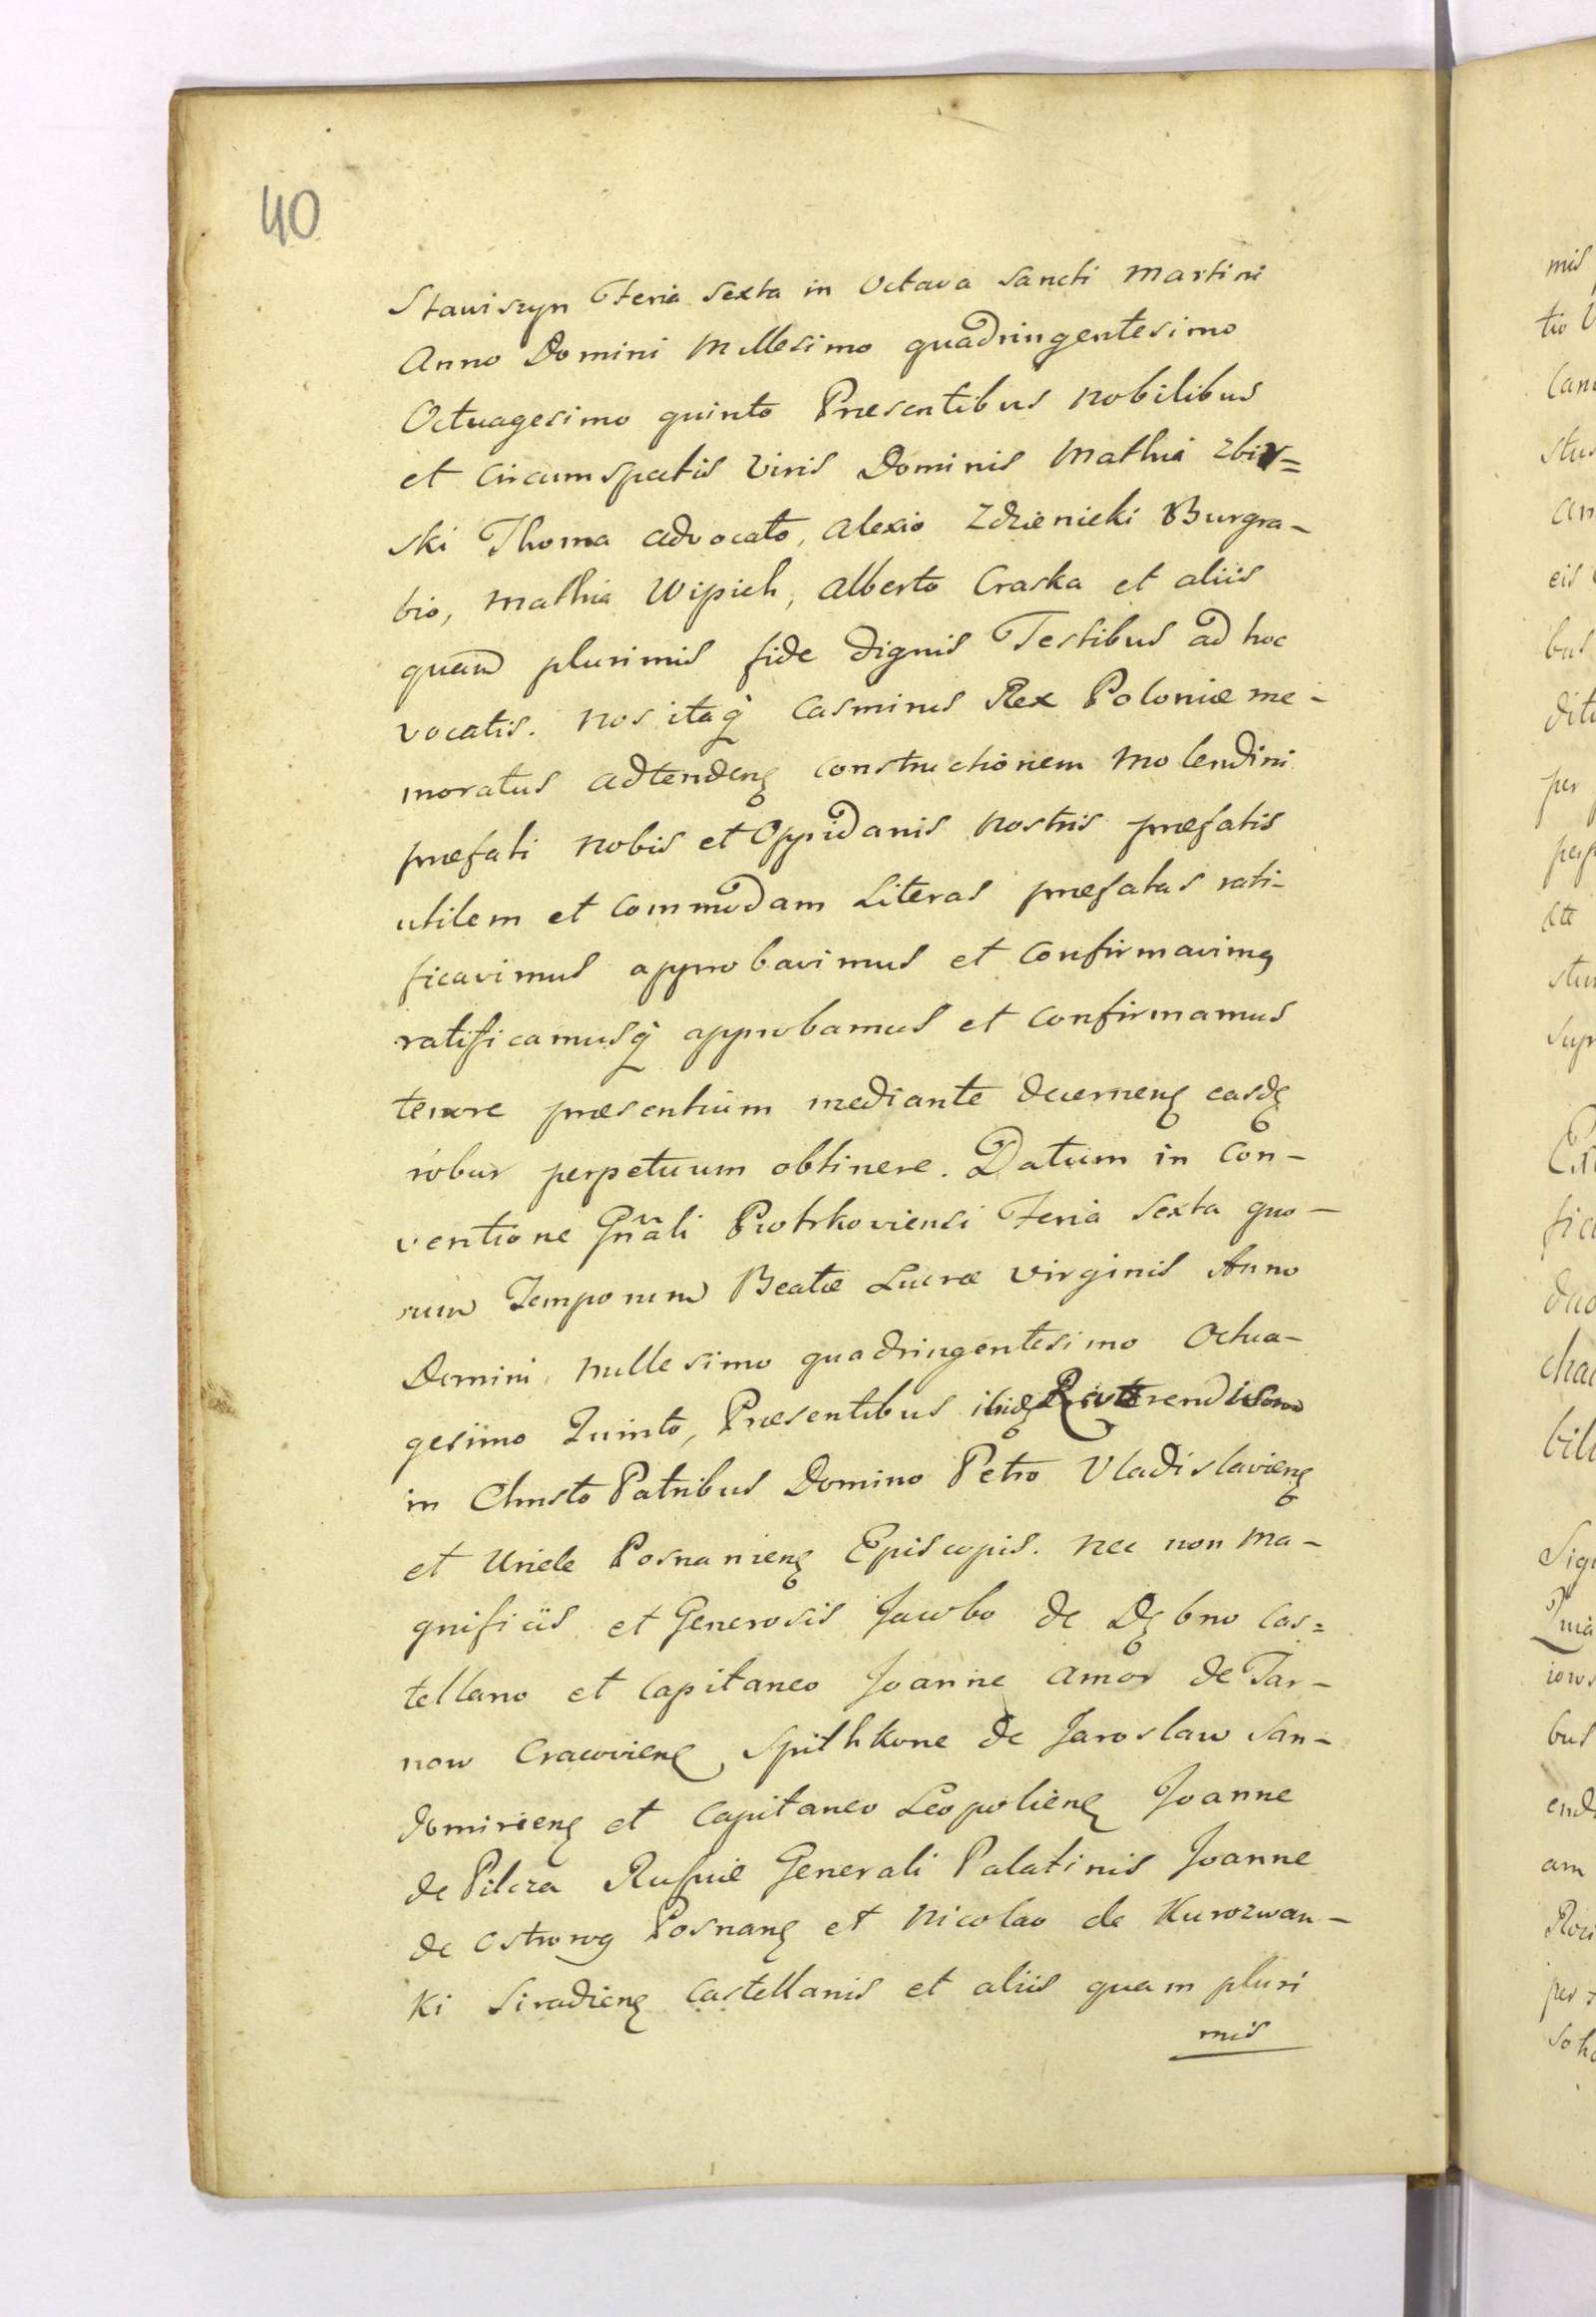 40
Stawiszyn Feria Sexta in Octava Sancti Martini
Anno Domini Millesimo quadringentesimo
Octuagesimo quinto Præsentibus Nobilibus
et Circumspectis Viris Dominis Mathia Zbir=
ski Thoma Advocato, Alexio Zdzienicki Burgra-
bio, Mathia Wipich, Alberto Craska et aliis
quam plurimis fide dignis Testibus ad hoc
vocatis. Nos itaq̀ Casmirus Rex Poloniæ me-
moratus adtendenę constructionem Molendini
præfati nobis et Oppidanis Nostris præfatis
utilem et Commodam Literas præfatas rati-
ficavimus approbavimus et Confirmavimę
ratificamusq̀ approbamus et Confirmamus
tenore præsentium mediante decernenę easdę
robur perpetuum obtinere. Datum in Con-
ventione Gn̄ali Piotrkoviensi Feria Sexta quo-
rum Temporum Beatæ Luciæ Virginis Anno
Domini Millesimo quadringentesimo Octua-
gesimo Quinto, Præsentibus ibidę
in Christo Patribus Domino Petro Vladislavienę
et Uriele Posnanienę Episcopis. Nec non Ma-
gnificis et Generosis Jacobo de Dębno Cas=
tellano et Capitaneo Joanne Amor de Tar-
now Cracovienę, Spithkone de Jaroslaw San-
domirienę et Capitaneo Leopolienę Joanne
de Pilcza Russiæ Generali Palatinis Joanne
de Ostrorog Posnanę et Nicolao de Kurozwan-
ki Siradienę Castellanis et aliis quam pluri
mis
mis
tio
stus
eis
bus
per
Sup
fica
bus
am
per